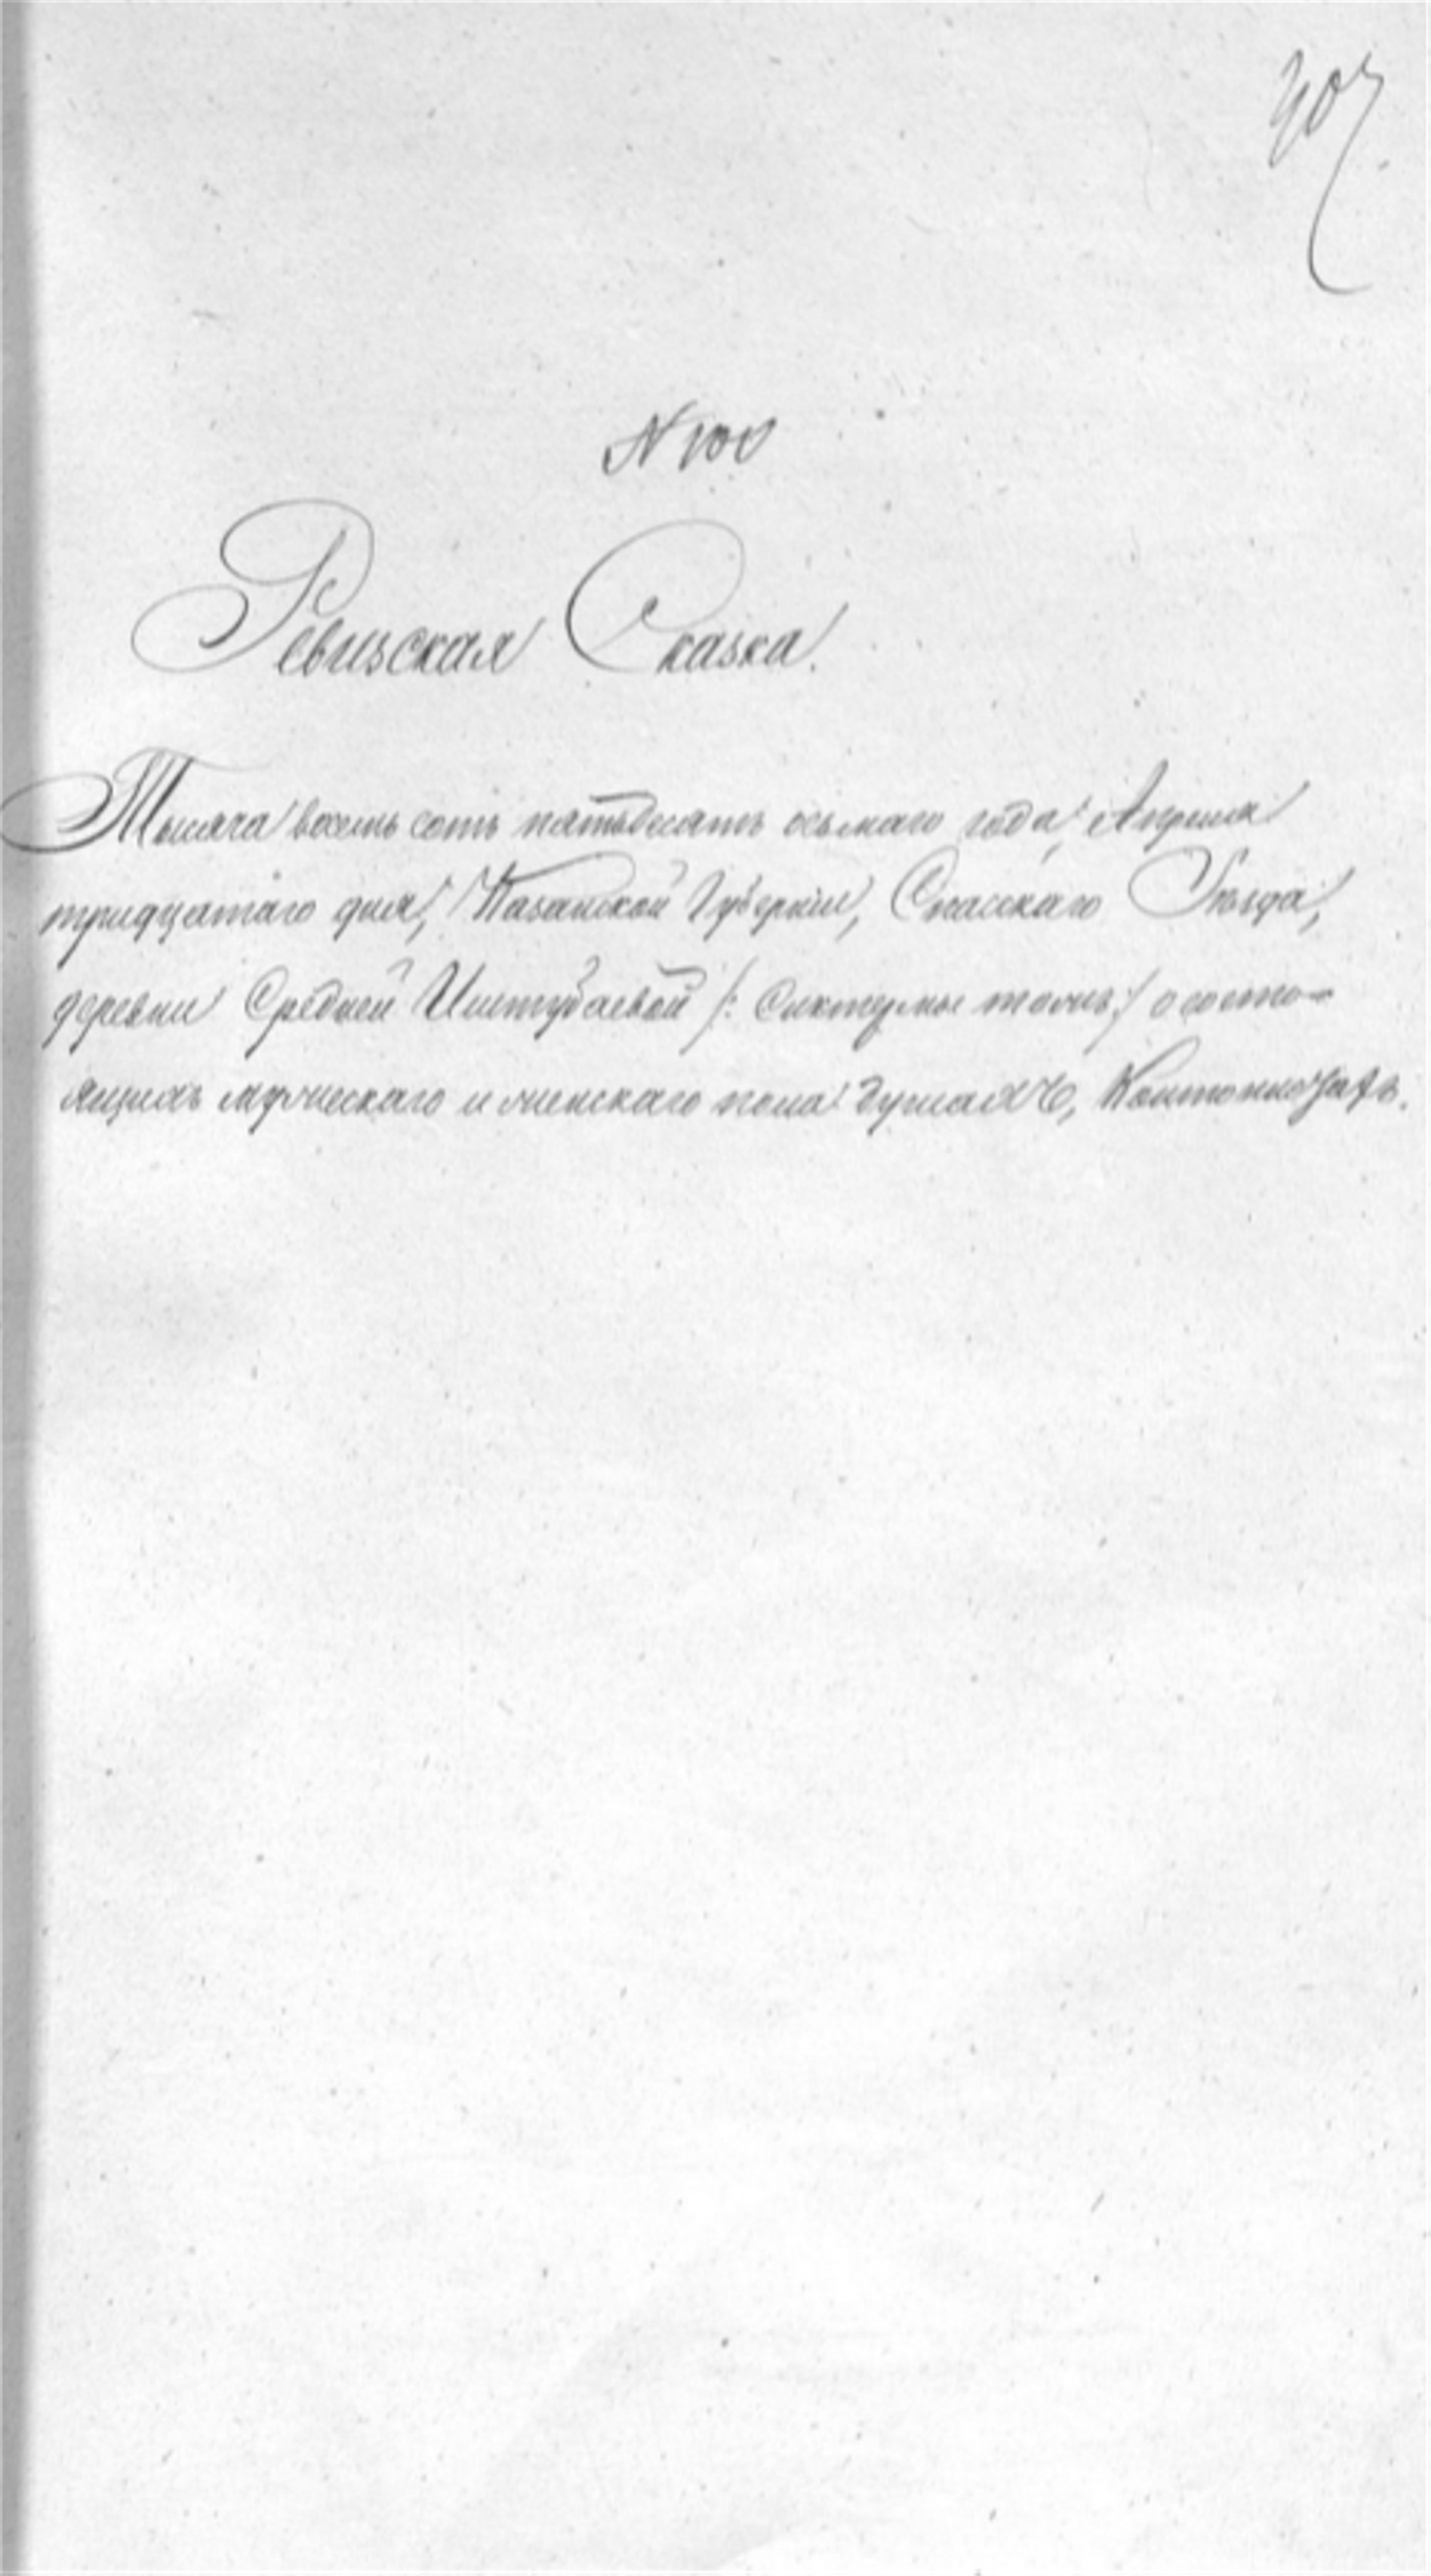 307
N 100
Ревизская Сказка.
Тысяча восемь сотъ пятьдесятъ осьмаго года, Апреля
тридцатаго дня, Казанской Губерніи, Спасскаго Уезда,
деревни Средней Иштубаевой /: Сиктермы тожъ :/ о состо-
ящихъ мужескаго и женскаго пола душахъ,